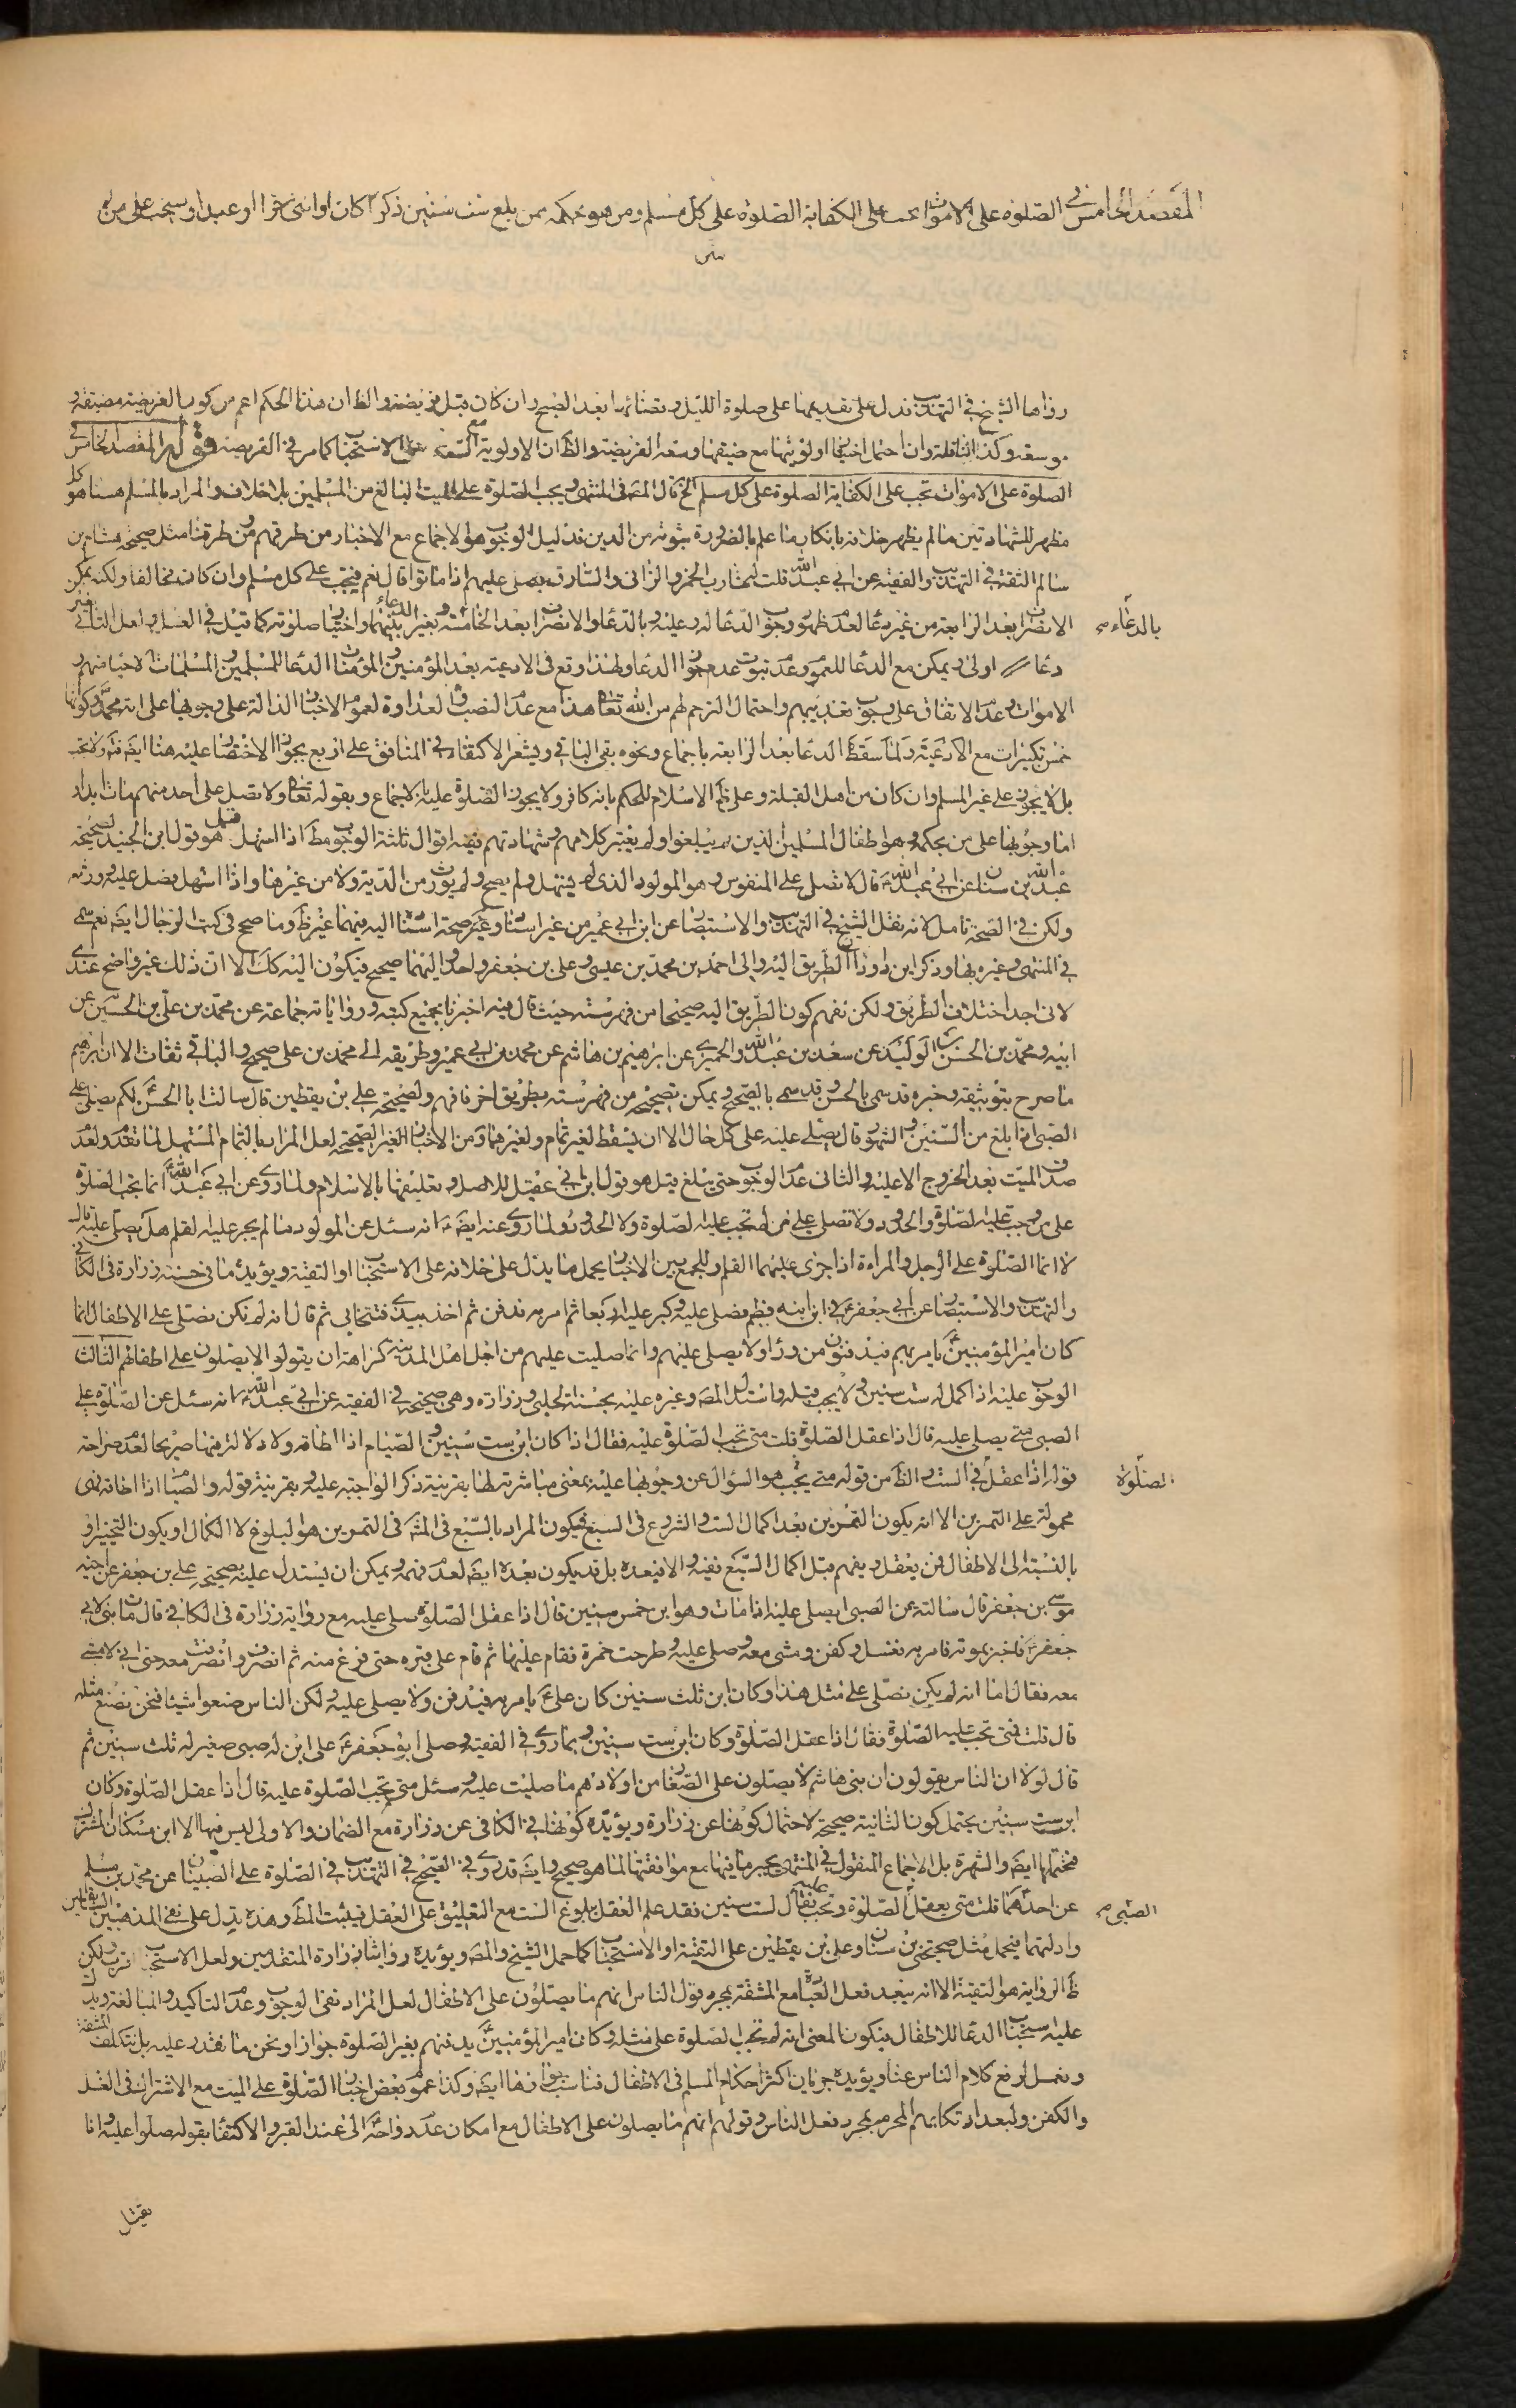 المقصد الخامس في الصلوة على الاموات تجب على الكفاية الصلوة على كل مسلم ومن هو بحكمه ممن بلغ ست سنين ذكرا كان او انثى حرا او عبدا ويستحب على من له
ست
رواها الشيخ في التهذيب تدل على تقديمها على صلوة الليل وقضائها بعد الصبح وان كان قبل فريضته والظ ان هذا الحكم اعم من كون الفريضة مضيقة و
موسعة وكذا النافلة وان احتمل اولويتها مع ضيقها وسعة الفريضة والظ ان الاولوية مع السعة على الاستحباب كما مر في الفريضة قوله المقصد الخامس في
الصلوة على الاموات تجب على الكفاية الصلوة على كل مسلم الخ قال المص في المنتهى ويجب الصلوة على الميت البالغ من المسلمين بلا خلاف والمراد بالمسلم هنا هو كل
مظهر للشهادتين ما لم يظهر خلافه بانكار ما علم بالضرورة ثبوته من الدين فدليل الوجوب هو الاجماع مع الاخبار من طرقهم ومن طرقنا مثل صحيحة هشام بن
سالم الثقة في التهذيب والفقيه عن ابي عبد الله قلت لشارب الخمر والزاني والسارق يصلى عليهم اذا ماتوا قال نعم فيجب على كل مسلم وان كان مخالفا ولكنه يمكن
الانصراف بعد الرابعة من غير دعاء لعدم ظهور وجوب الدعاء له وعليه وبالدعاء والانصراف بعد الخامسة وبغير الدعاء بينهما واختيار صلوته كما قيل في الغسل ولعل الثاني بغير
بالدعاء
دعاء اولى ويمكن مع الدعاء للعموم وعدم ثبوت عدم جواز الدعاء ولهذا وقع في الادعية بعد المؤمنين والمؤمنات الدعاء للمسلمين والمسلمات الاحياء منهم و
الاموات وعدم الاتفاق على وجوب تعذيبهم واحتمال الترحم لهم من الله تعالى هذا مع عدم النصب والعداوة لعموم الاخبار الدالة على وجوبها على امة محمد وكونها
خمس تكبيرات مع الادعية ولما سقط الدعاء بعد الرابعة باجماع ونحوه بقي الباقي ويشعر الاكتفاء في المنافق على اربع بجواز الاختصار عليه هنا ايضا فت ولا تجب
بل لا يجوز على غير المسلم وان كان من اهل القبلة وعلى الاسلام للحكم بانه كافر ولا يجوز الصلوة عليه بالاجماع وبقوله تعالى ولا تصل على احد منهم مات ابدا و
اما وجوبها على من بحكمه وهو اطفال المسلمين الذين لم يبلغوا ولم يعتبر كلامهم وشهادتهم ففيه اقوال ثلثة الوجوب مط اذا استهل قيل هو قول ابن الجنيد لصحيحة
عبد الله بن سنان عن ابي عبد الله قال لا تصل على المنفوس وهو المولود الذي لم يستهل ولم يصح ولم يورث من الدية ولا من غيرها واذا استهل فصل عليه وورثه
ولكن في الصحة تامل لانه نقل الشيخ في التهذيب والاستبصار عن ابن ابي عمير من غير اسناد وغير صحة اسناده اليه فيهما غير ظ وما صح في كتب الرجال ايضا نعم سمى
في المنتهى وغيره بها وذكر ابن داود ان الطريق اليه والى احمد بن محمد بن عيسى وعلى بن جعفر واحد واليهما صحيح فيكون اليه كك الا ان ذلك غير واضح عندي
لانى اجد اختلاف الطريق ولكن نفهم كون الطريق اليه صحيحا من فهرسته حيث قال فيه اخبرنا بجميع كتبه ورواياته جماعة عن محمد بن علي بن الحسين عن
ابيه ومحمد بن الحسن بن الوليد عن سعد بن عبد الله والحميري عن ابراهيم بن هاشم عن محمد بن ابي عمير وطريقه الى محمد بن علي صحيح والباقي ثقات الا ان ابراهيم
ما صرح بتوثيقه وخبره قد سمى بالحسن وقد سمى بالصحيح ويمكن تصحيحه من فهرسته بطريق اخر فافهم ولصحيحة علي بن يقطين قال سالت ابا الحسن لكم يصلى على
الصبي اذا بلغ من السنين والشهور قال يصلى عليه على كل حال الا ان يسقط لغير تمام ولغيرهما من الاخبار الغير الصحيحة لعل المراد بالتمام المستهل لما تقدم ولعدم
صدق الميت بعد الخروج الا عليه والثاني عدم الوجوب حتى يبلغ قيل هو قول ابن ابي عقيل للاصل وتعليقها بالاسلام ولما روى عن ابي عبد الله انما تجب الصلوة
على من وجبت عليه الصلوة والحدود ولا تصلى على من لم تجب عليه الصلوة ولا الحدود ولما روى عنه ايضا انه سئل عن المولود ما لم يجر عليه القلم هل يصلى عليه قال
لا انما الصلوة على الرجل والمراءة اذا جرى عليهما القلم وللجمع بين الاخبار يحمل ما يدل على خلافه على الاستحباب او التقية ويؤيده ما في حسنة زرارة في الكافي
والتهذيب والاستبصار عن ابي جعفر في ابن ابنه فطيم فصلى عليه وكبر عليه اربعا ثم امر به فدفن ثم اخذ بيدي فتنحى بي ثم قال انه لم يكن يصلى على الاطفال انما
كان امير المؤمنين يامر بهم فيدفنون من وراء ولا يصلى عليهم وانما صليت عليهم من اجل اهل المدينة كراهة ان يقولوا لا يصلون على اطفالهم الثالث
الوجوب عليه اذا كمل له ست سنين ولا يجب قبله واستدل المص وغيره عليه بحسنة الحلبي وزرارة وهي صحيحة في الفقيه عن ابي عبد الله انه سئل عن الصلوة على
الصبي متى يصلى عليه قال اذا عقل الصلوة قلت متى تجب الصلوة عليه فقال اذا كان ابن ست سنين والصيام اذا اطاقه ولا دلالة فيها صريحا لعدم صراحة
قوله اذا عقل في الست والظ من قوله متى يجب هو السؤال عن وجوبها عليه بمعنى مباشرته لها بقرينة ذكر الواجبة عليه وبقرينة قوله والصيام اذا اطاقه فهى
الصلوة
محمولة على التمرين الا انه يكون التمرين بعد اكمال الست والشروع في السبع فيكون المراد بالسبع في المشهور في التمرين هو البلوغ لا الكمال او يكون التخيير او
بالنسبة الى الاطفال فمن يعقل ويفهم قبل اكمال السبع ففيه والا فبعده بل قد يكون بعده ايضا لعدم فهمه ويمكن ان يستدل عليه بصحيحة علي بن جعفر عن اخيه
موسى بن جعفر قال سالته عن الصبي ايصلى عليه اذا مات وهو ابن خمس سنين قال اذا عقل الصلوة صلى عليه مع رواية زرارة في الكافي قال مات بني لابي
جعفر فاخبر بموته فامر به فغسل وكفن ومشى معه وصلى عليه وطرحت خمرة فقام عليها ثم قام على قبره حتى فرغ منه ثم انصرف وانصرفت معه حتى اني لامشي
معه فقال اما انه لم يكن يصلى على مثل هذا وكان ابن ثلث سنين كان علي يامر به فيدفن ولا يصلى عليه ولكن الناس صنعوا شيئا فنحن نصنع مثله
قال قلت فمتى تجب عليه الصلوة فقال اذا عقل الصلوة وكان ابن ست سنين وبما روى في الفقيه وصلى ابو جعفر على ابن له صبي صغير له ثلث سنين ثم
قال لولا ان الناس يقولون ان بني هاشم لا يصلون على الصغار من اولادهم ما صليت عليه وسئل متى تجب الصلوة عليه قال اذا عقل الصلوة وكان
ابن ست سنين يحتمل كون الثانية صحيحة لاحتمال كونها عن زرارة ويؤيده كونها في الكافي عن زرارة مع الضمان والاولى ليس فيها الا ابن مسكان المشترك
فيحتملها ايضا والشهرة بل الاجماع المنقول في المنتهى يجبر ما فيها مع موافقتها لما هو صحيح وايضا قد روى في الصحيح في التهذيب في الصلوة على الصبيان عن محمد بن مسلم
عن احدهما قلت متى يعقل الصلوة وتجب عليه فقال لست سنين فقد علم العقل ببلوغ الست مع التعليق على العقل فيثبت المط وهذه يدل على نفي المذهبين السابقين
الصبي
وادلتهما فيحمل مثل صحيحتي بن سنان وعلي بن يقطين على التقية او الاستحباب كما حمل الشيخ والمص ويؤيده روايتا زرارة المتقدمين ولعل الاستحباب اقرب ولكن
ظ الرواية هو التقية الا انه يبعد فعل العبادة مع المشقة بمجرد قول الناس انهم ما يصلون على الاطفال لعل المراد نفى الوجوب وعدم التاكيد والمبالغة ويدل
عليه استحباب الدعاء للاطفال فيكون المعنى انه لم تجب الصلوة على مثله وكان امير المؤمنين يدفنهم بغير الصلوة جوازا ونحن ما نقدر عليه بل نتكلف المشقة
ونعمل لرفع كلام الناس عنا ويؤيده جريان اكثر احكام المسلم في الاطفال فناسب جوازها ايضا وكذا عموم بعض اخبار الصلوة على الميت مع الاشتراك في الغسل
والكفن ولبعد ارتكابهم المحرم بمجرد فعل الناس وقولهم انهم ما يصلون على الاطفال مع امكان عدم رواحه الى عند القبر والاكتفاء بقوله صلوا عليه وانا
يقتل